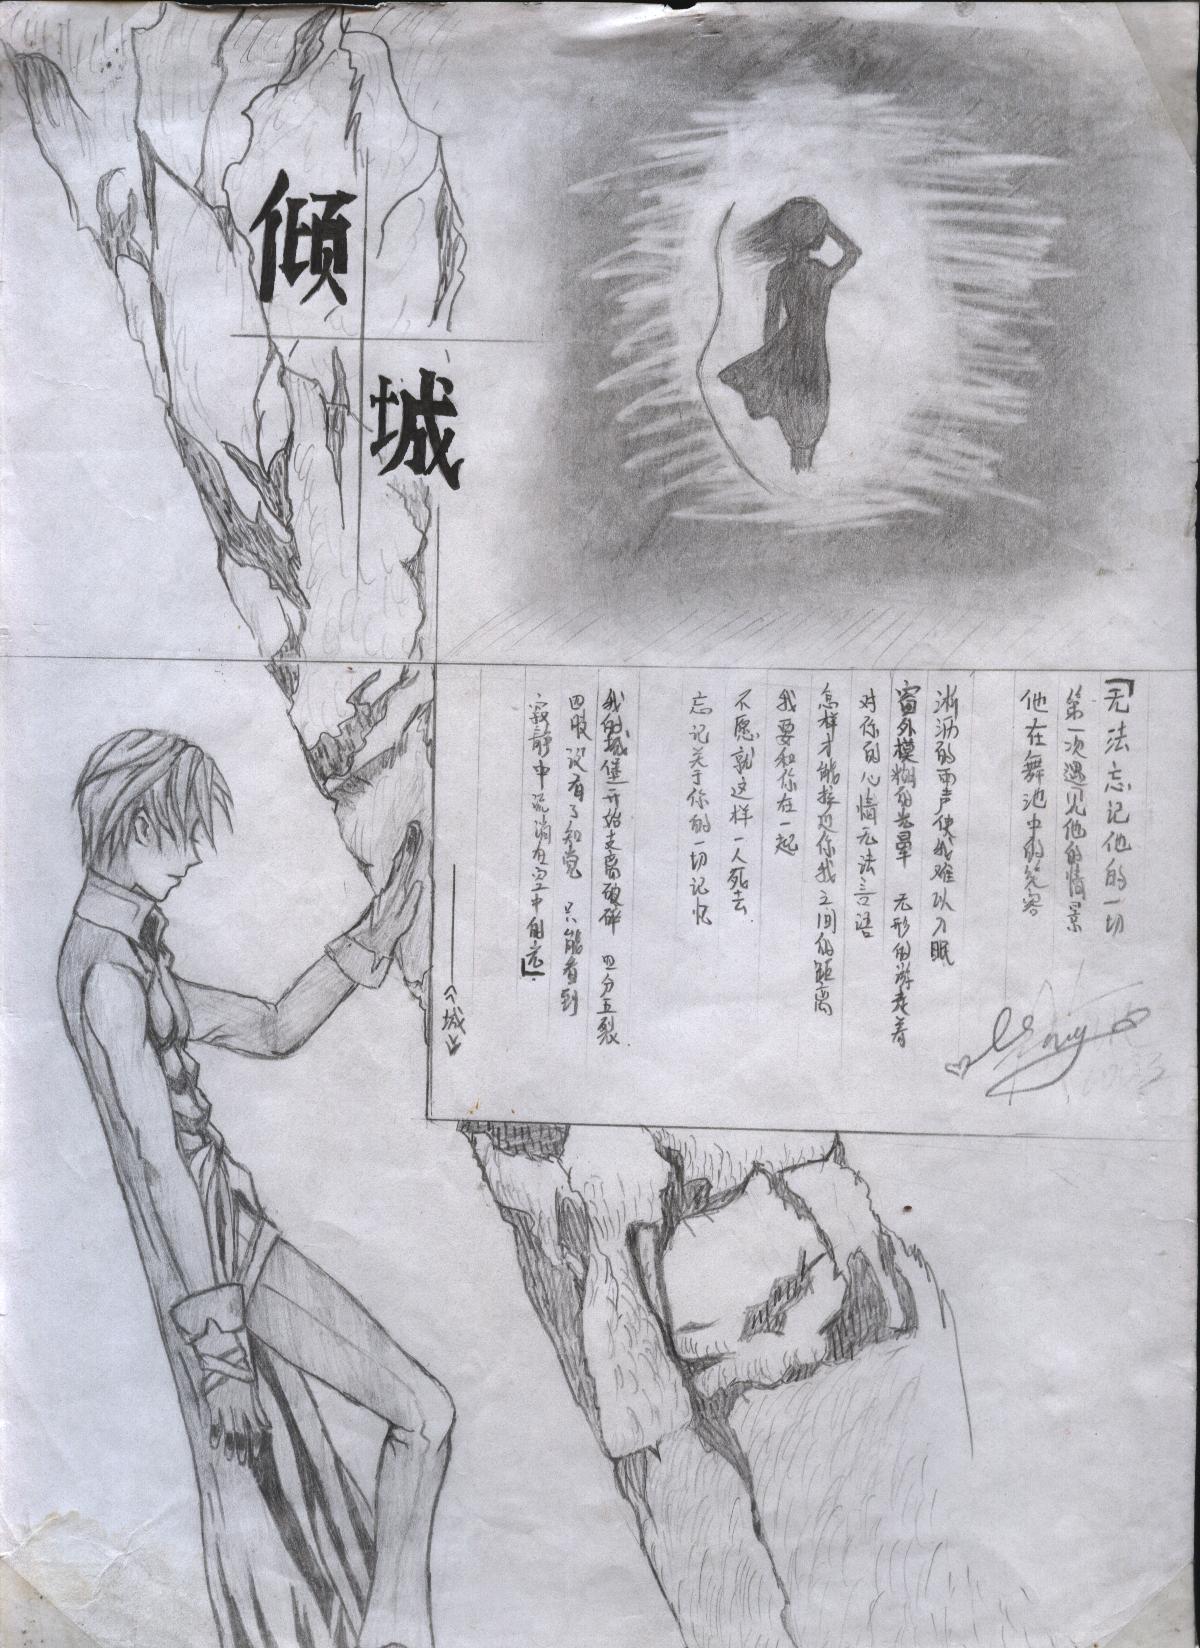 倾
城
「无法忘记他的一切
第一次遇见他的情景
他在舞池中的笑容
淅沥的雨声使我难以入眠
窗外模糊的光晕 无形的游走着
对你的心情无法言语
怎样才能接近你我之间的距离
我要和你在一起
不愿就这样一人死去
忘记关于你的一切记忆
我的城堡开始支离破碎 四分五裂
四肢没有了知觉 只能看到
寂静中流淌在空中的
——《城》